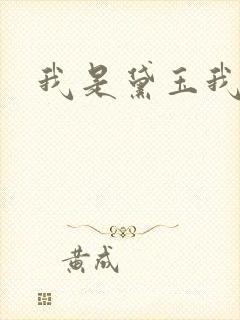 我是黛玉我
黄成